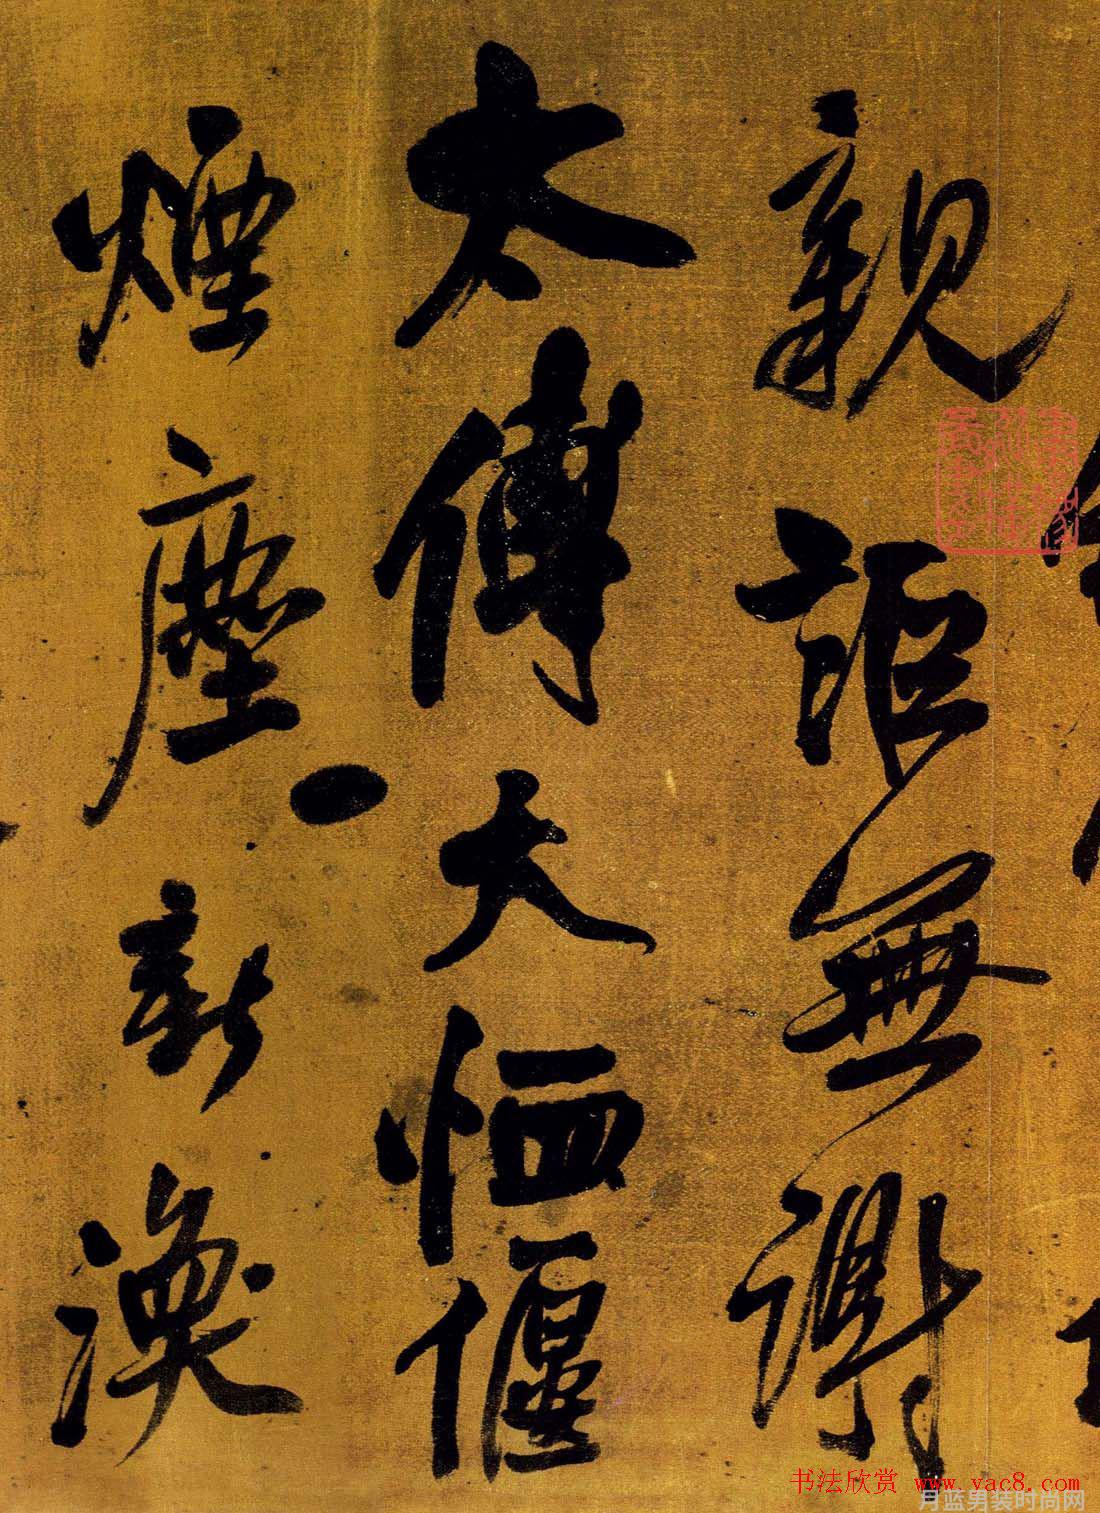 親詎無謝
太傅大恤偃
煙塵新渙
书法欣赏 www.yac8.com
月蓝男装时尚网